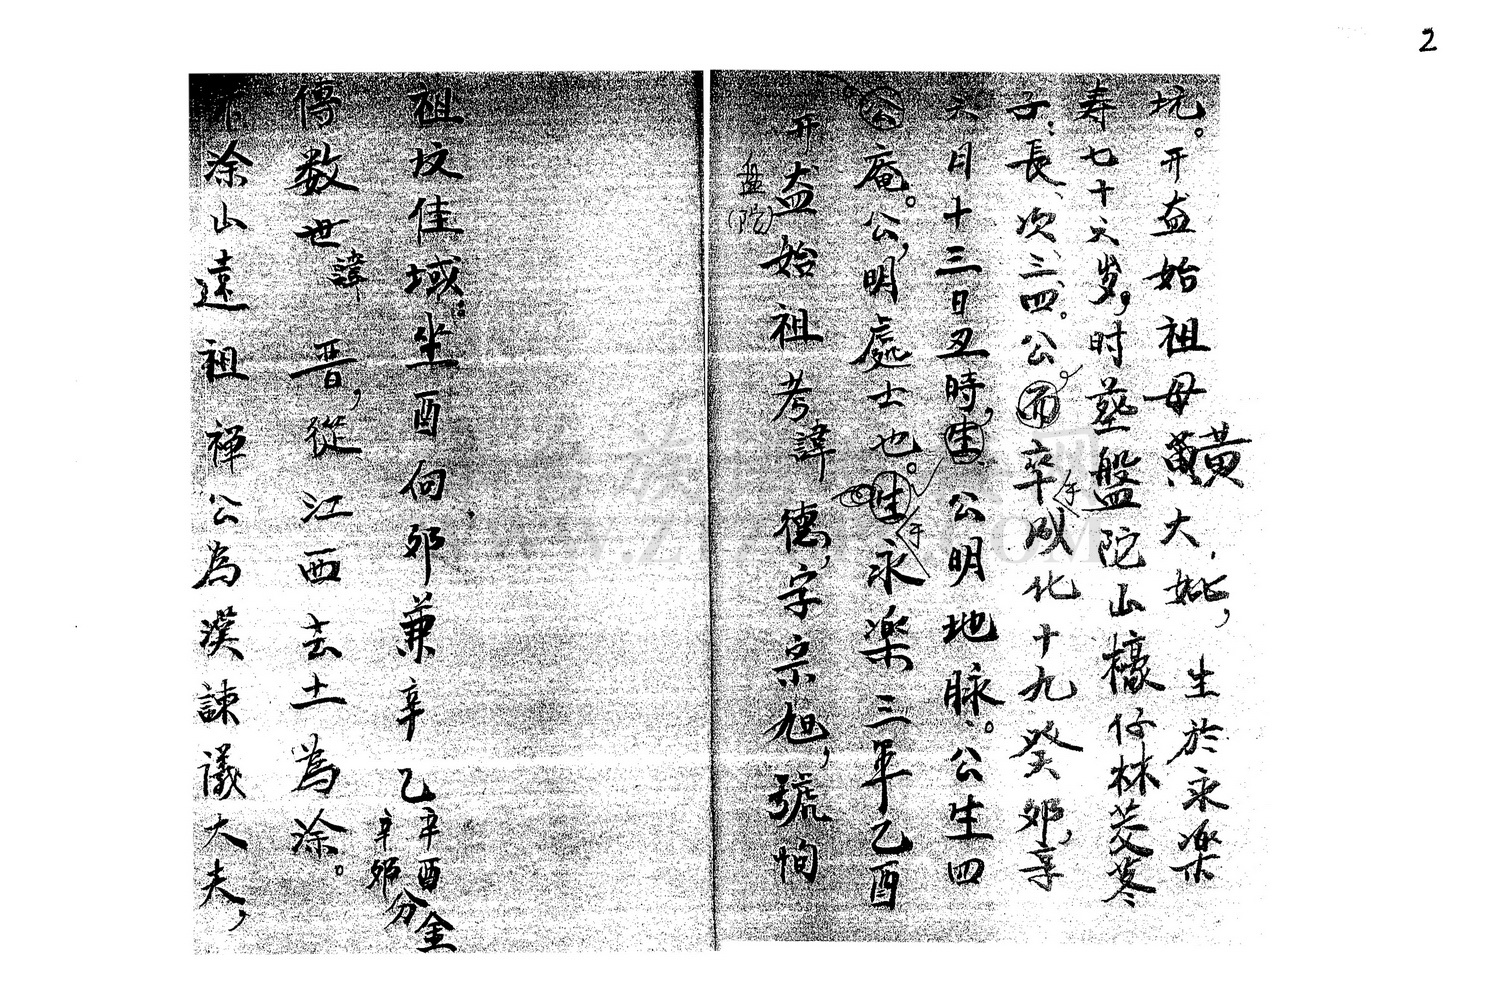 昔涂山遠祖禪公為漢諫議大夫,
傳数世諱晋,從江西去土為涂。
祖坟佳域:坐酉向卯兼辛乙辛酉辛卯分金
盘(陀)
开盆始祖考諱德,字宗旭,號恂
公庵。公,明處士也。生永樂三年乙酉
六月十三日丑時,生公明地脉。公生四
子:長、次、三、四。公而卒成化十九癸卯,享
寿七十六岁,时葬盤陀山檺仔林茭苳
坑。开盆始祖母黄大妣,生於永樂
黄
2